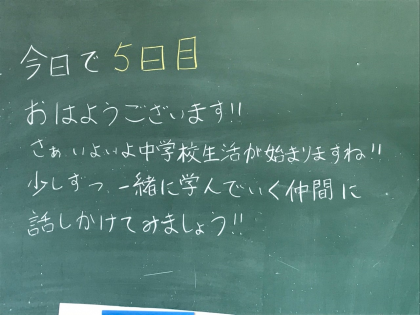 今日で5日目
おはようございます!!
さぁ いよいよ中学校生活が始まりますね!!
少しずつ、一緒に学んでいく仲間に
話しかけてみましょう!!